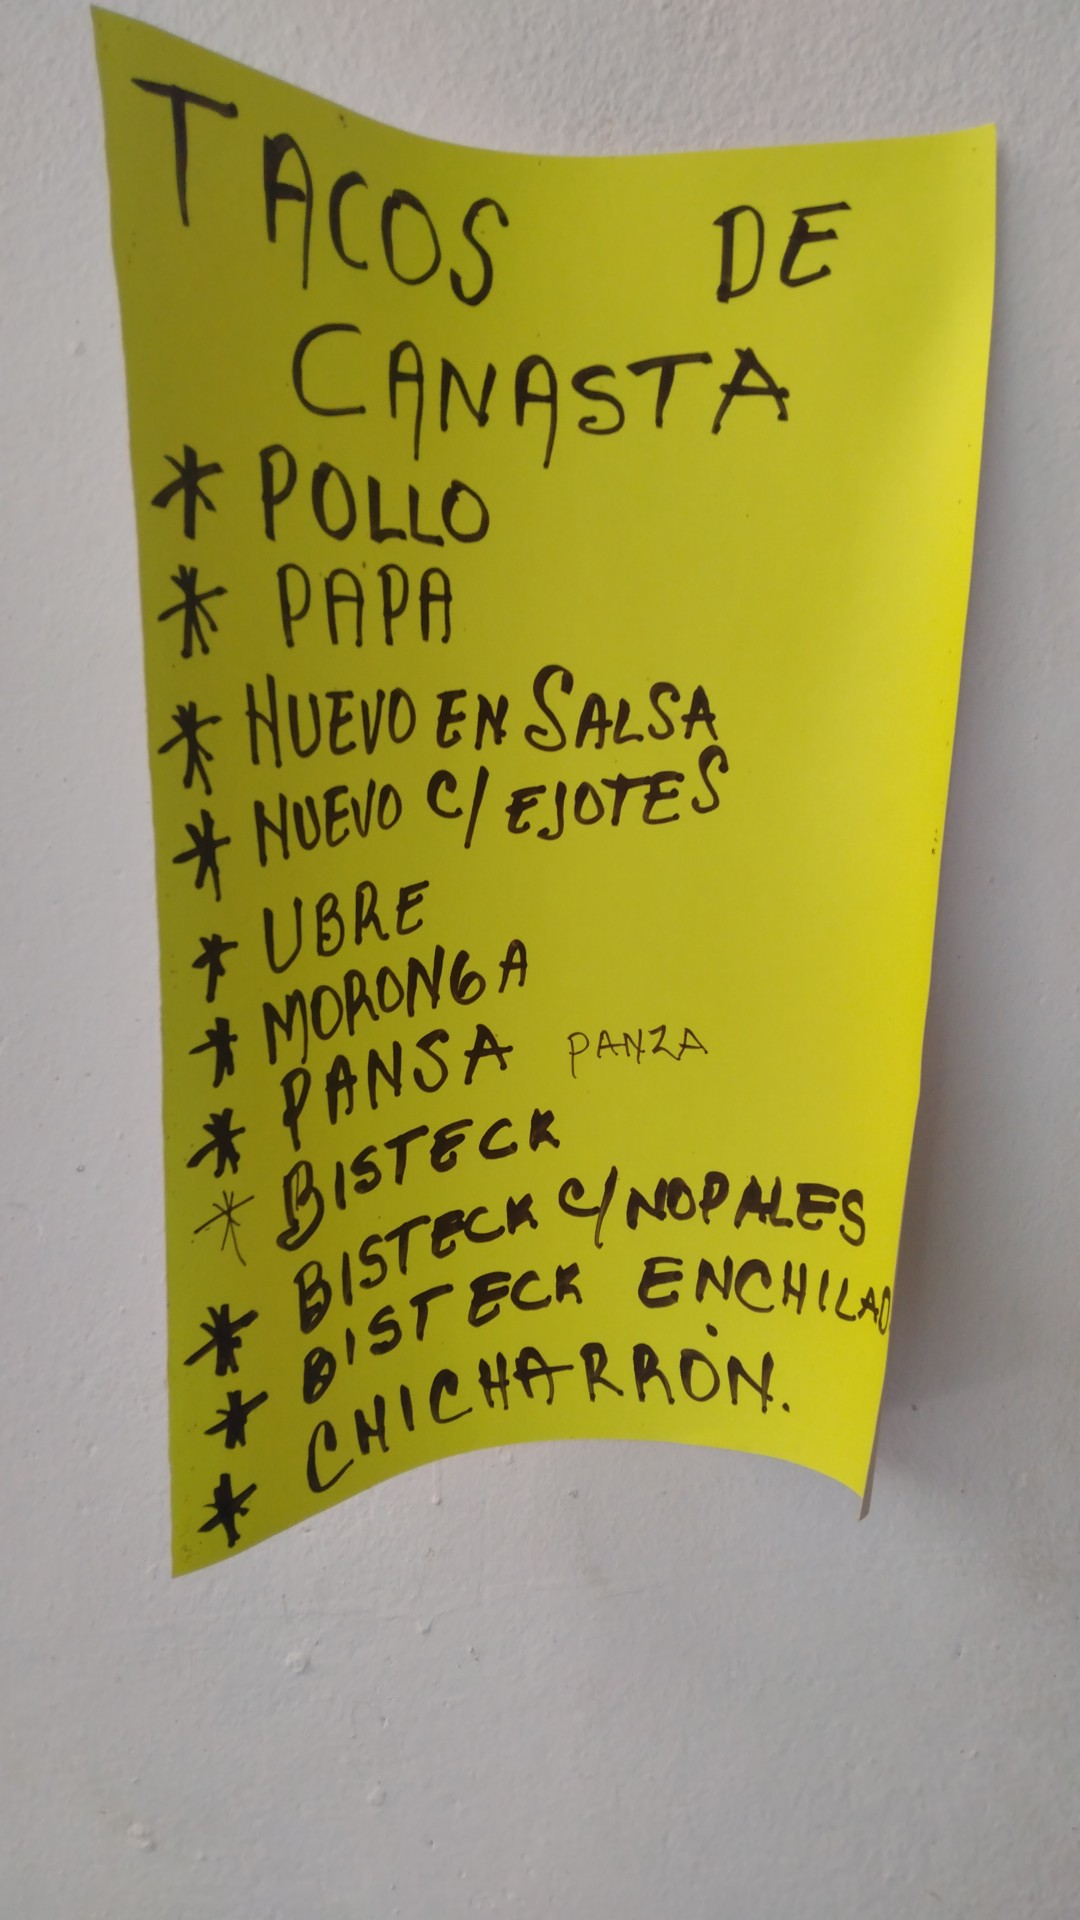 TACOS DE
CANASTA
* POLLO
* PAPA
* HUEVO EN SALSA
* HUEVO C/EJOTES
* UBRE
* MORONGA
* PANSA PANZA
* BISTECK
* BISTECK C/NOPALES
* BISTECK ENCHILAO
* CHICHARRÓN.